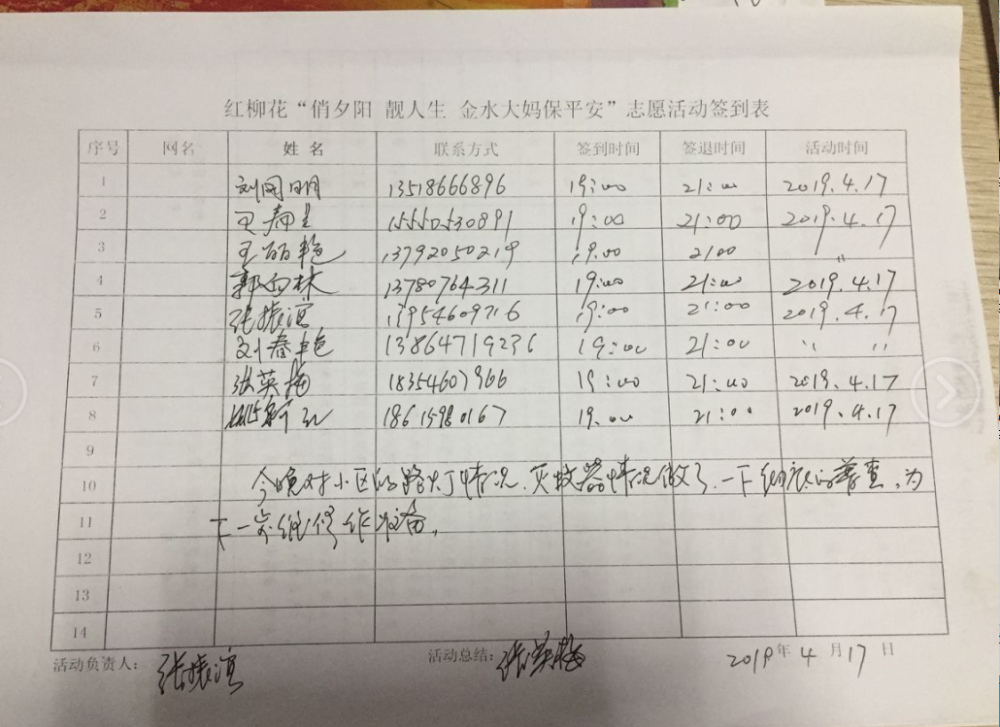 红柳花“俏夕阳 靓人生 金水大妈保平安”志愿活动签到表
序号 网名 姓名 联系方式 签到时间 签退时间 活动时间
1 刘国明 13518666896 19:00 21:00 2019.4.17
2 15550530891 19:00 21:00 2019.4.17
3 王丽艳 13792050219 19.00 2100 〃
4 郭向林 13780764311 19:00 21:00 2019.4.17
5 张振滨 19:00 21:00 2019.4.17
6 刘春艳 13864719236 19:00 21:00 〃 〃
7 张英梅 18354607966 19:00 21:00 2019.4.17
8 18615980167 19.00 21:00 2019.4.17
9
10 今晚对小区的路灯情况、灭火器情况做了一下彻底的普查,为
11 下一步维修作准备。
12
13
14
活动负责人: 张振滨 活动总结: 张英梅 2019年4月17日